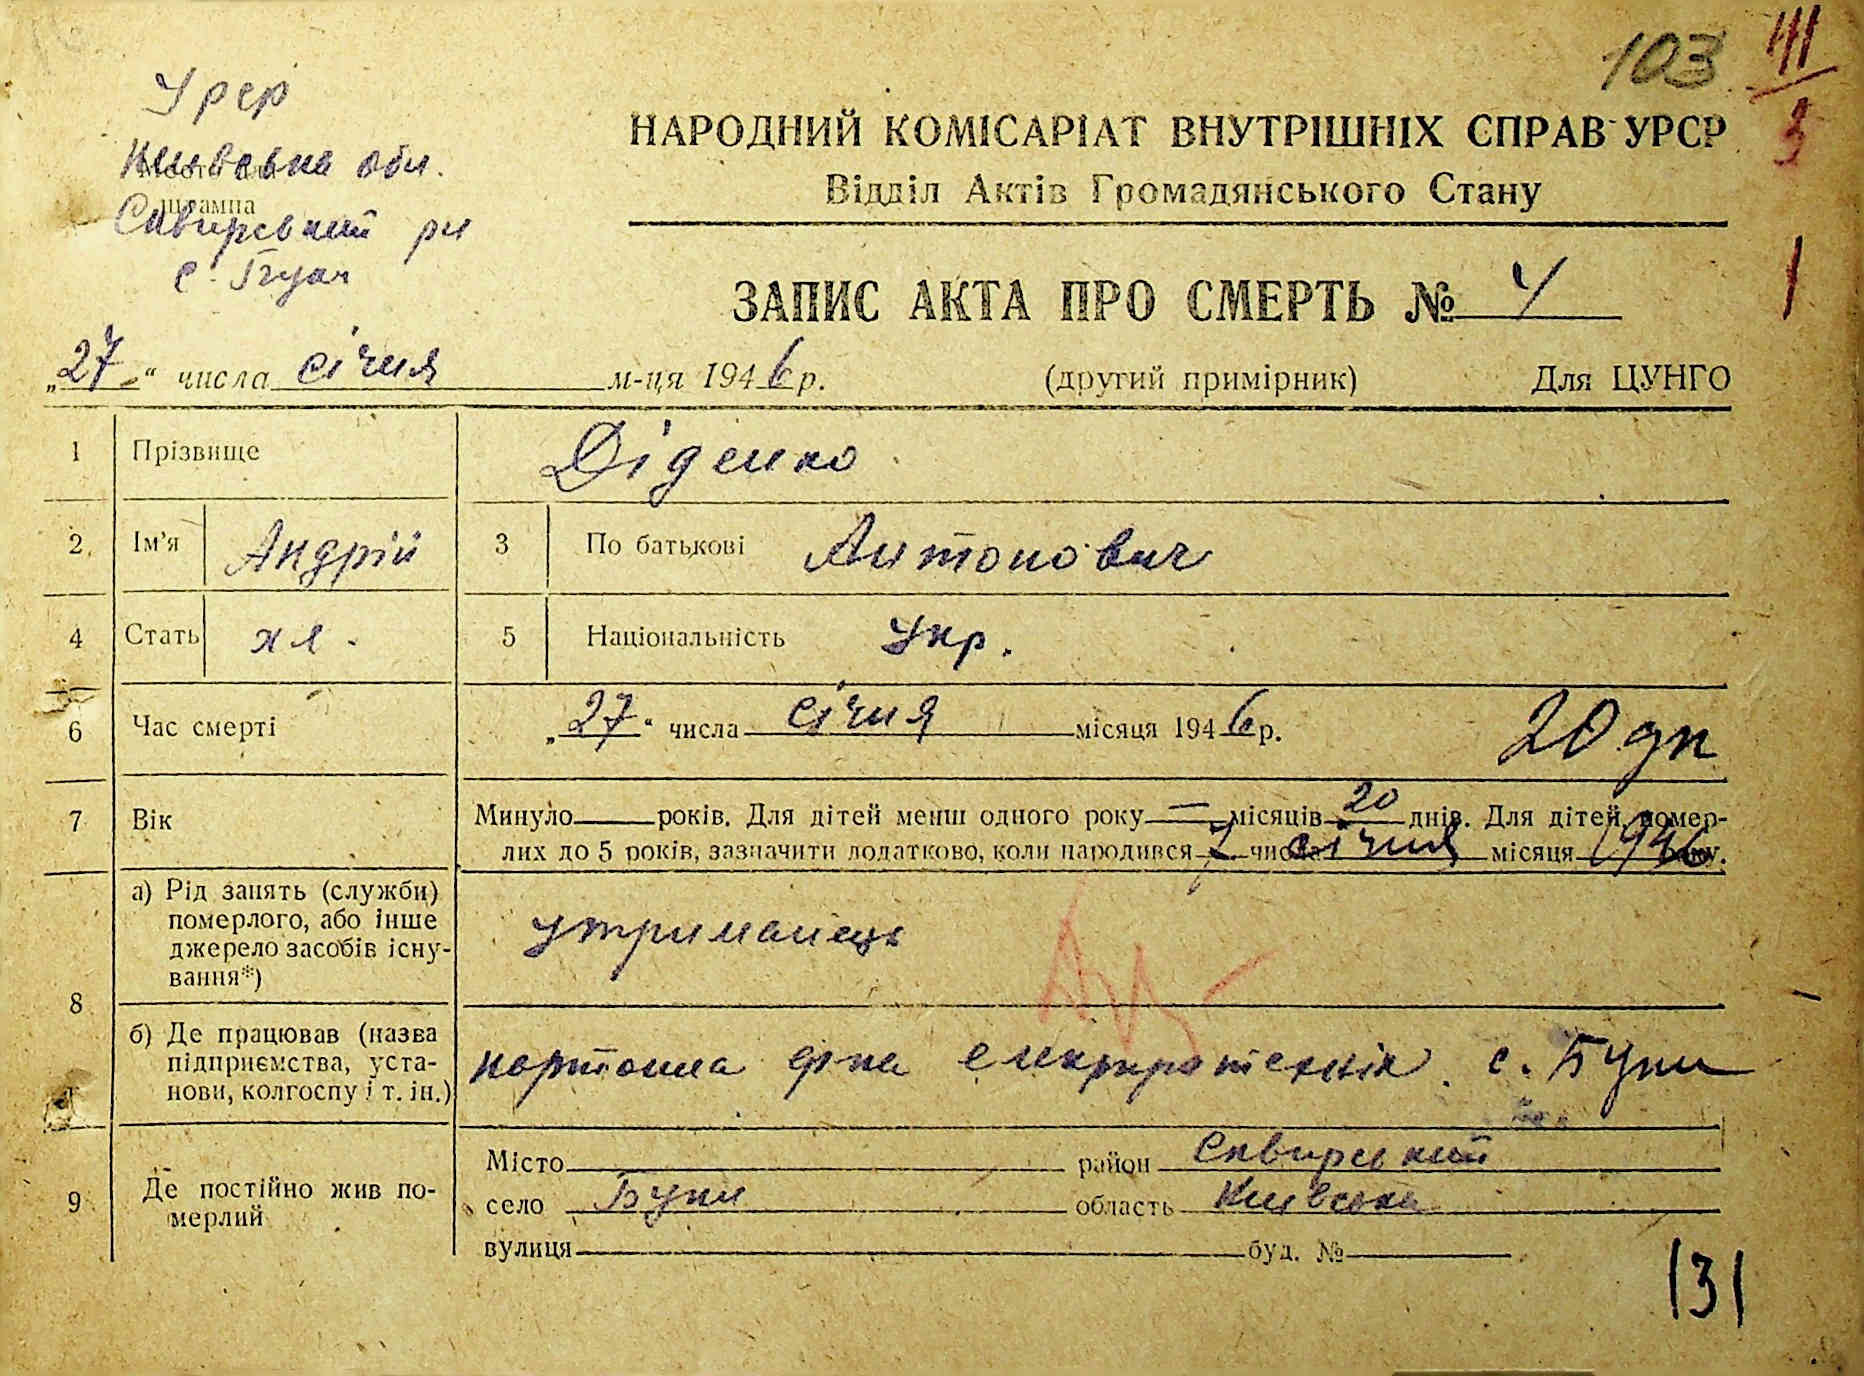 103
III
3
1
УРСР
Київська обл.
Сквирський рн
с. Буки
НАРОДНИЙ КОМІСАРІАТ ВНУТРІШНІХ СПРАВ УРСР
Відділ Актів Громадянського Стану
ЗАПИС АКТА ПРО СМЕРТЬ № 4
„27“ числа січня м-ця 1946 р. (другий примірник) Для ЦУНГО
1 Прізвище Діденко
2 Ім’я Андрій 3 По батькові Антонович
4 Стать чл. 5 Національність Укр.
6 Час смерті „27“ числа січня місяця 1946 р. 20 дн
7 Вік Минуло — років. Для дітей менш одного року — місяців 20 днів. Для дітей, помер-
лих до 5 років, зазначити додатково, коли народився 7 числа січня місяця 1946 року.
8 а) Рід занять (служби)
померлого, або інше
джерело засобів існу-
вання*)
утриманець
б) Де працював (назва
підприємства, уста-
нови, колгоспу і т. ін.)
с. Буки
9 Де постійно жив по-
мерлий
Місто район Сквирський
село Буки область Київська
вулиця буд. №
131